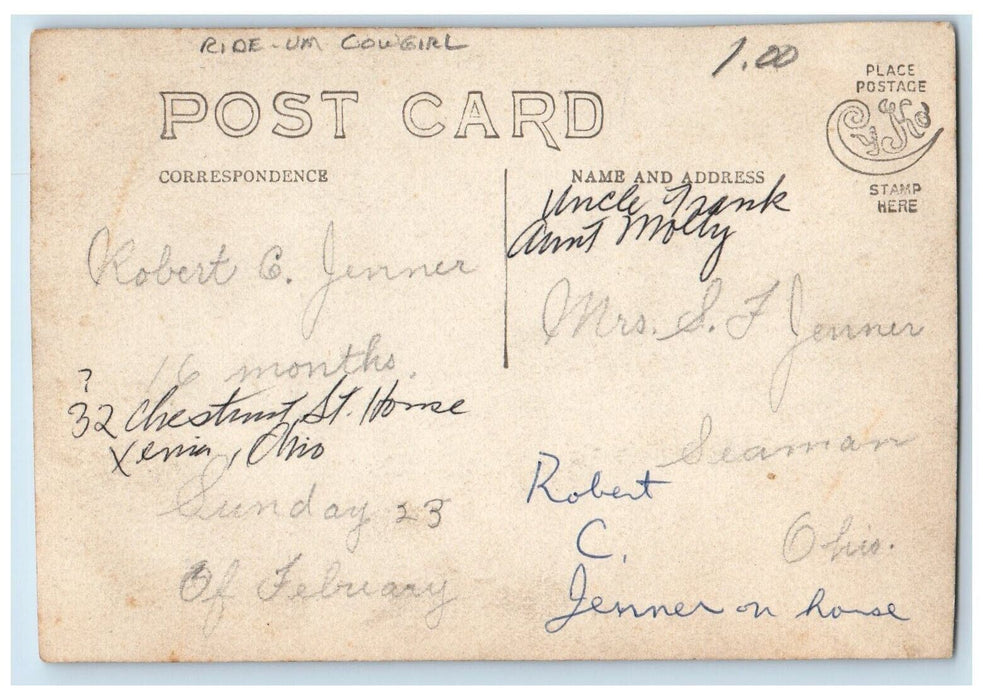 RIDE-UM COWGIRL
1.00
POST CARD
PLACE
POSTAGE
CyKo
STAMP
HERE
CORRESPONDENCE
NAME AND ADDRESS
Robert C. Jenner
16 months.
?
32 Chestnut St. Home
Xenia, Ohio
Sunday 23
Of Februray
Uncle Frank
Aunt Molly
Mrs. S. F Jenner
Seaman
Ohio.
Robert
C.
Jenner on horse